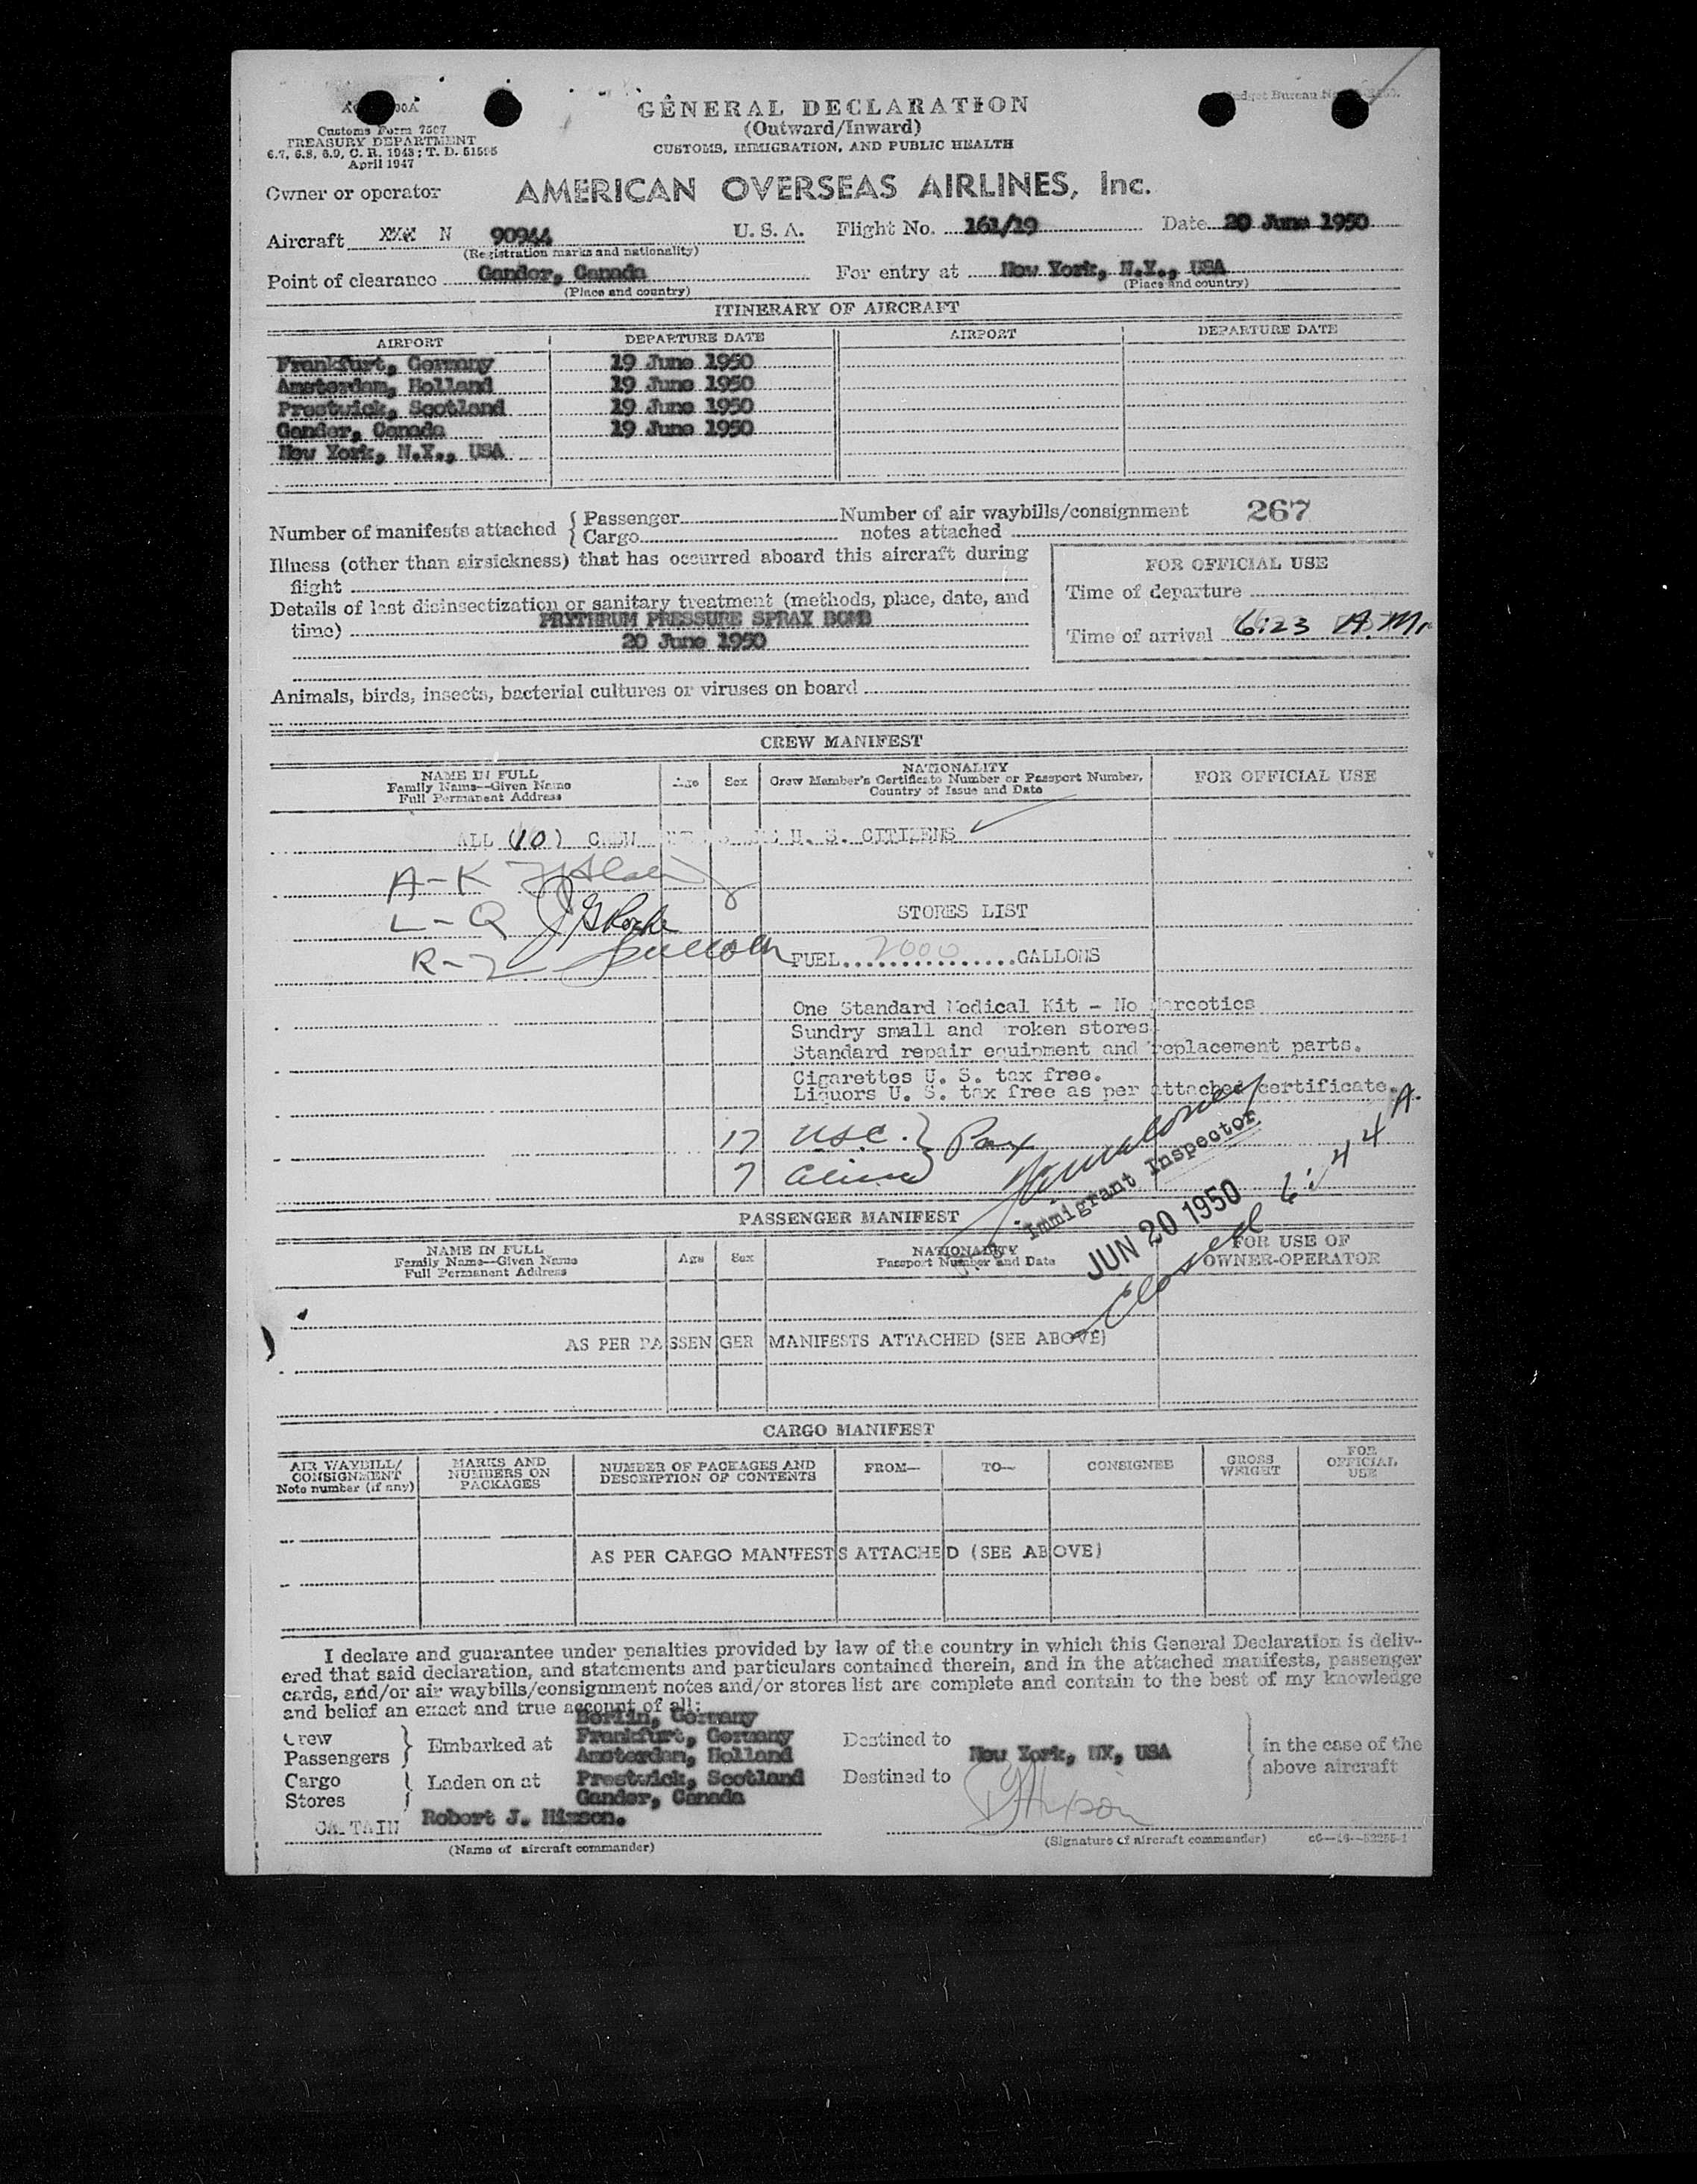 GENERAL DECLARATION
(Outward/Inward)
CUSTOMS, IMMIGRATION, AND PUBLIC HEALTH
Customs Form 7507
TREASURY DEPARTMENT
6.7, 6.8, 6.9, C. R. 1943; T. D. 51595
April 1947
Budget Bureau No.
Owner or operator AMERICAN OVERSEAS AIRLINES, Inc.
Aircraft XXX N 90944 U. S. A. Flight No. 161/19 Date 20 June 1950
(Registration marks and nationality)
Point of clearance Gander, Canada For entry at New York, N.Y., USA
(Place and country) (Place and country)
ITINERARY OF AIRCRAFT
AIRPORT DEPARTURE DATE AIRPORT DEPARTURE DATE
Frankfurt, Germany 19 June 1950
Amsterdam, Holland 19 June 1950
Prestwick, Scotland 19 June 1950
Gander, Canada 19 June 1950
New York, N.Y., USA
Number of manifests attached { Passenger Number of air waybills/consignment 267
Cargo notes attached
Illness (other than airsickness) that has occurred aboard this aircraft during
flight
FOR OFFICIAL USE
Time of departure
Time of arrival 6:23 A.M.
Details of last disinsectization or sanitary treatment (methods, place, date, and
time) PRYTHRUM PRESSURE SPRAY BOMB
20 June 1950
Animals, birds, insects, bacterial cultures or viruses on board
CREW MANIFEST
NAME IN FULL
Family Name--Given Name
Full Permanent Address
Age Sex
NATIONALITY
Crew Member's Certificate Number or Passport Number,
Country of Issue and Date
FOR OFFICIAL USE
ALL (10) CREW U. S. CITIZENS
A-K
L-Q
R-Z
STORES LIST
FUEL 2000 GALLONS
One Standard Medical Kit - No Narcotics
Sundry small and roken stores
Standard repair equipment and replacement parts.
Cigarettes U. S. tax free.
Liquors U. S. tax free as per attached certificate.
17 USC. } Pax
7 Aliens
Immigrant Inspector
JUN 20 1950
Closed 6:44 A.
PASSENGER MANIFEST
NAME IN FULL
Family Name--Given Name
Full Permanent Address
Age Sex
NATIONALITY
Passport Number and Date
FOR USE OF
OWNER-OPERATOR
AS PER PASSENGER MANIFESTS ATTACHED (SEE ABOVE)
CARGO MANIFEST
AIR WAYBILL/
CONSIGNMENT
Note number (if any)
MARKS AND
NUMBERS ON
PACKAGES
NUMBER OF PACKAGES AND
DESCRIPTION OF CONTENTS
FROM— TO— CONSIGNEE
GROSS
WEIGHT
FOR
OFFICIAL
USE
AS PER CARGO MANIFESTS ATTACHED (SEE ABOVE)
I declare and guarantee under penalties provided by law of the country in which this General Declaration is deliv-
ered that said declaration, and statements and particulars contained therein, and in the attached manifests, passenger
cards, and/or air waybills/consignment notes and/or stores list are complete and contain to the best of my knowledge
and belief an exact and true account of all:
Berlin, Germany
Crew Frankfurt, Germany
Passengers } Embarked at Amsterdam, Holland Destined to New York, NY, USA } in the case of the
Cargo } Laden on at Prestwick, Scotland Destined to above aircraft
Stores Gander, Canada
CAPTAIN Robert J. Hixson.
(Name of aircraft commander) (Signature of aircraft commander)